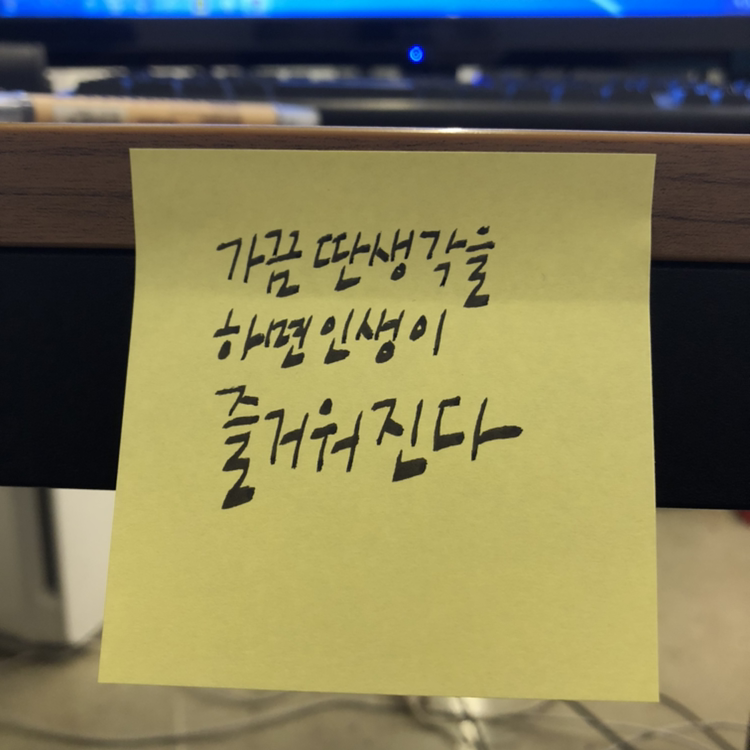 가끔 딴생각을
하면 인생이
즐거워진다